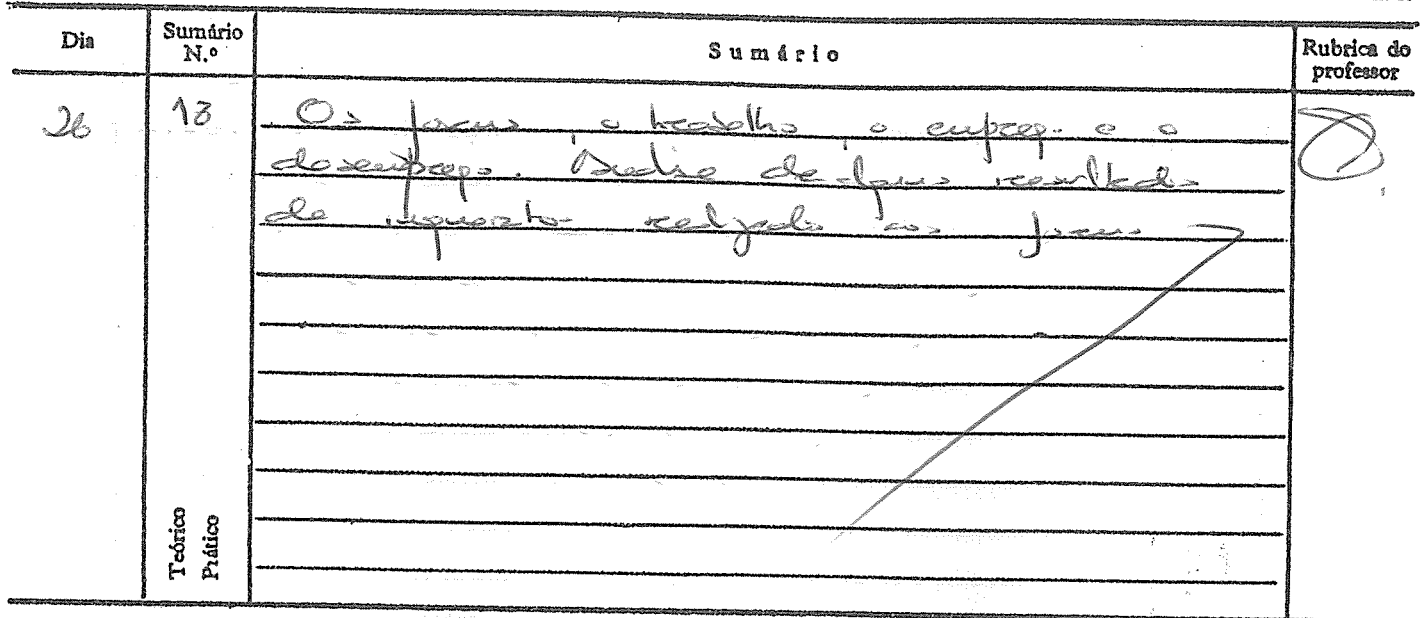 Dia
Sumário N.º
Sumário
Rubrica do professor
26
18
Os jovens, o trabalho, o emprego e o
desemprego. Análise de alguns resultados
de inquérito realizado aos jovens
Teórico
Prático